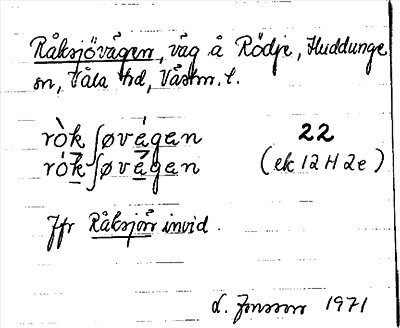 Råksjövägen, väg å Rödje, Huddunge
sn, Våla hd, Västm. l.
ròkʃøvá̱gen 22
ró̱kʃøvä̱gen (ek 12 H 2 e)
Jfr Råksjön invid.
L. Jonsson 1971